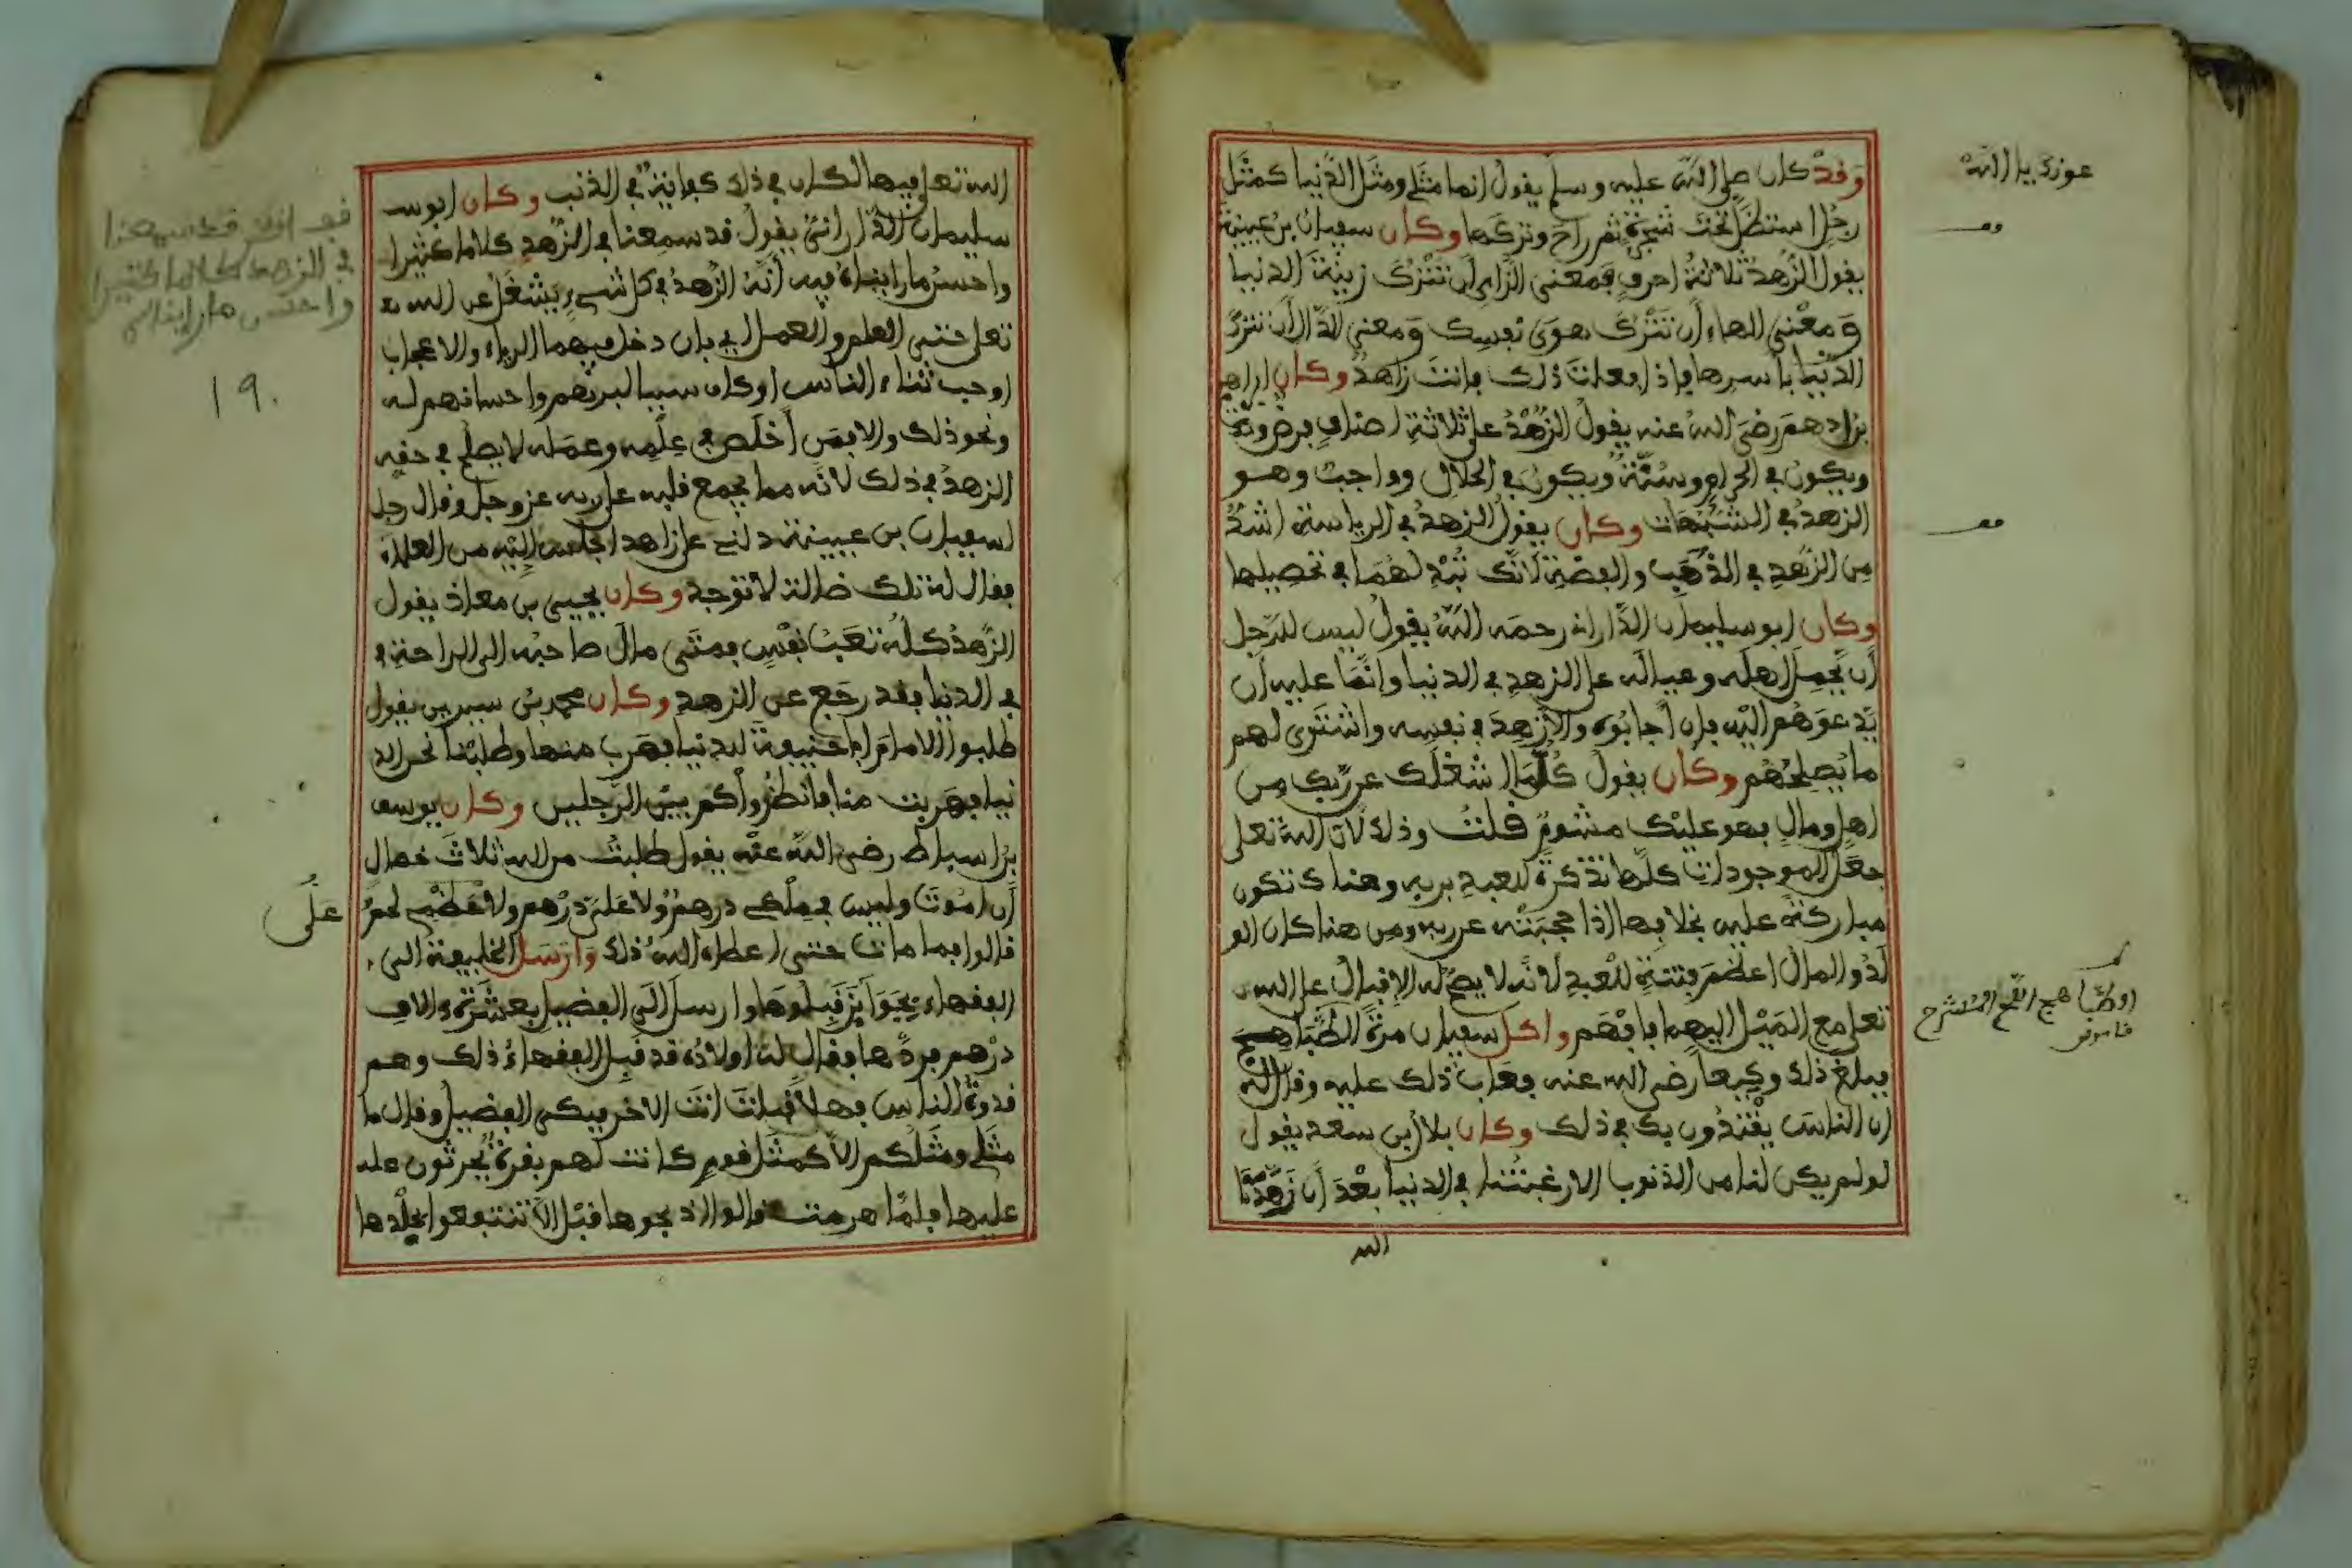 وقد كان صلى الله عليه وسلم يقول انما مثلي ومثل الدنيا كمثل
رجل استظل تحت شجرة ثم راح وتركها وكان سعيان بن عيينة
يقول الزهد ثلاثة احرف فمعنى الزاي ان تترك زينة الدنيا
ومعنى الهاء ان تترك هوى نفسك ومعنى الدال ان تترك
الدنيا باسرها فإذا فعلت ذلك فانت زاهد وكان ابراهيم
بن ادهم رضي الله عنه يقول الزهد على ثلاثة اصناف فرض
ويكون في الحرام وسنة ويكون في الحلال وواجب وهو
الزهد في الشبهات وكان يقول الزهد في الرياسة اشد
من الزهد في الذهب والفضة لانك تبذلهما في تحصيلها
وكان ابو سليمان الداراني رحمه الله يقول ليس للرجل
أن يحمل اهله وعياله على الزهد في الدنيا وانما عليه ان
يدعوهم اليه فان اجابوه والا زهد في نفسه واشترى لهم
ما يصلحهم وكان يقول كلما اشغلك عن ربك من
اهل ومال فهو عليك مشوم قلت وذلك لان الله تعلى
جعل الموجودات كلها تذكرة للعبد بربه وهناك تكون
مباركة عليه بخلافها اذا حجبته عن ربه ومن هنا كان الو
لد والمال اعظم فتنة للعبد لانه لا يصح له الاقبال على الله
تعلى مع الميل اليهما فافهم واكل سفيان مرة الطباهج
فبلغ ذلك وكيعا رضي الله عنه فعاب ذلك عليه وقال له
ان الناس يقتدون بك في ذلك وكان بلال بن سعد يقول
لو لم يكن لنا من الذنوب الا رغبتنا في الدنيا بعد أن زهدنا
الله
الله تعلى فيها لكان في ذلك كفاية في الذنب وكان ابو
سليمان الداراني يقول قد سمعنا في الزهد كلاما كثيرا
واحسن ما رايناه فيه أنه الزهد في كل شيء يشغل عن الله
تعلى حتى العلم والعمل اي بان دخل فيهما الرياء والاعجاب
او حب ثناء الناس او كان سببا لبرهم واحسانهم له
ونحو ذلك والا فمن أخلص في علمه وعمله لا يصلح في حقه
الزهد في ذلك لانه مما يجمع قلبه على ربه عز وجل وقال رجل
لسعيان بن عيينة دلني على زاهد اجلس اليه من العلماء
فقال له تلك ضالة لا توجد وكان يحيى بن معاذ يقول
الزهد كله تعب نفس فمتى مال صاحبه الى الراحة
في الدنيا فقد رجع عن الزهد وكان محمد بن سيرين يقول
طلبوا الامام ابا حنيفة للدنيا فهرب منها وطلبنا نحن الد
نيا فهربت منا فانظروا كم بين الرجلين وكان يوسف
بن اسباط رضي الله عنه يقول طلبت من الله ثلاث خصال
أن اموت وليس في ملكي درهم ولا علي درهم ولا عظمي لحم
قالوا فما مات حتى اعطاه الله ذلك وارسل الخليفة الى
الفقهاء بجوايز فقبلوها وارسل الى الفضيل بعشرة الاف
درهم فردها فقال له اولاده قد قبل الفقهاء ذلك وهم
قدوة الناس فهلا قبلت انت الاخر فبكى الفضيل وقال ما
مثلي ومثلكم الا كمثل قوم كانت لهم بقرة يحرثون
عليها فلما هرمت قالوا اذبحوها قبل الا تنتفعوا بجلدها
قد سمعنا
في الزهد كلاما كثيرا
واحسن ما رايناه
19.
على